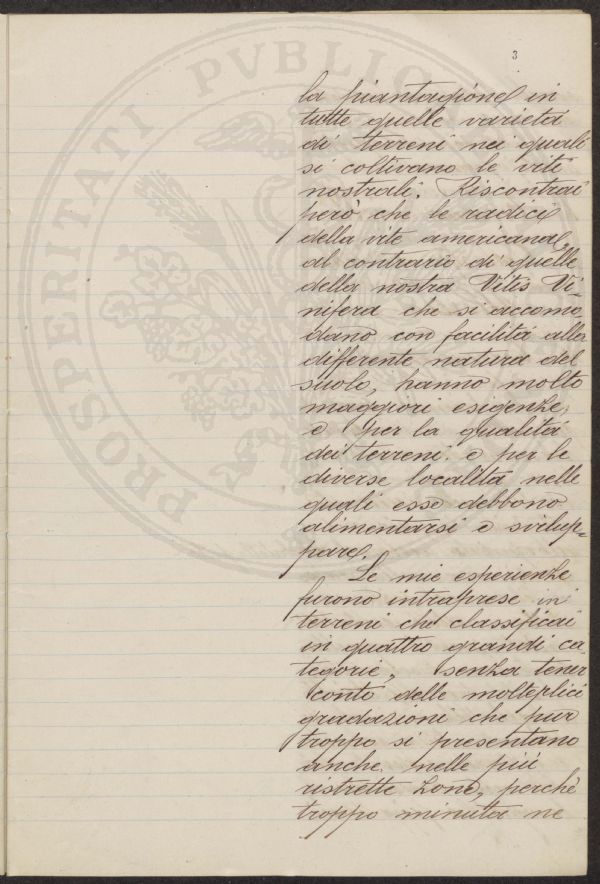 3
PROSPERITATI PVBLIC
la piantagione in
tutte quelle varietá
di terreni nei quali
si coltivano le viti
nostrali. Riscontrai
però che le radici
della vite americana,
al contrario di quelle
della nostra Vitis Vi-
nifera che si accomo-
dano con facilità alla
differente natura del
suolo, hanno molto
maggiori esigenze,
e per la qualitá
dei terreni e per le
diverse localita nelle
quali esse debbono
alimentarsi e svilup=
pare.
Le mie esperienze
furono intraprese in
terreni che classificai
in quattro grandi ca
tegorie, senza tener
conto delle molteplici
gradazioni che pur
troppo si presentano
anche nelle piú
ristrette zone, perchè
troppo minuta ne